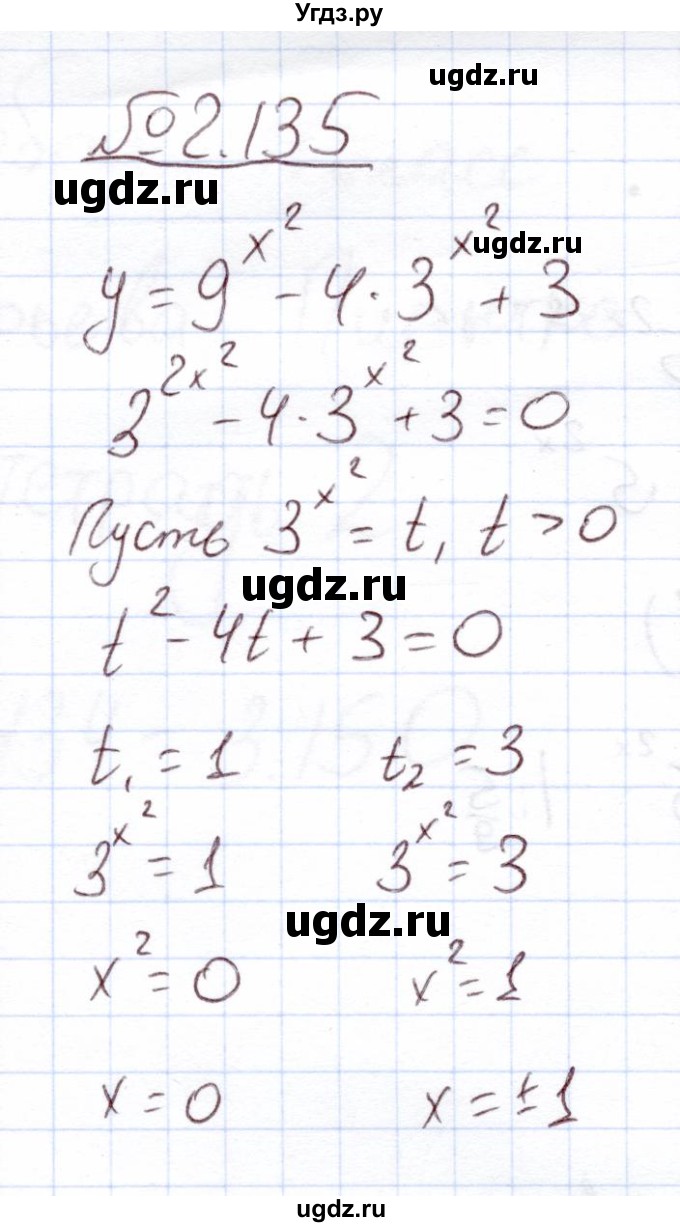 Угдз.ру
ugdz.ru
№2.135
ugdz.ru
y = 9^{x^2} - 4 · 3^{x^2} + 3
ugdz.ru
3^{2x^2} - 4 · 3^{x^2} + 3 = 0
Пусть 3^{x^2} = t, t > 0
ugdz.ru
t^2 - 4t + 3 = 0
t_1 = 1 t_2 = 3
3^{x^2} = 1 3^{x^2} = 3
ugdz.ru
x^2 = 0 x^2 = 1
x = 0 x = ±1
ugdz.ru